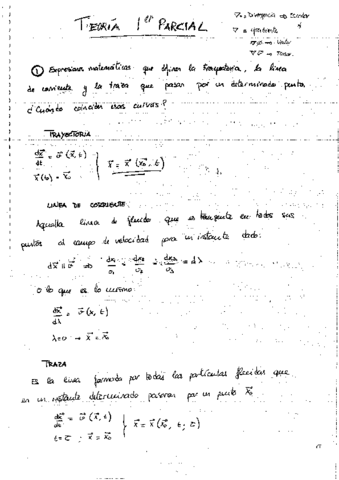 TEORÍA 1er PARCIAL
∇·, Divergencia → Escalar
∇ → gradiente
∇φ → Vector
∇v̄ → Tensor
① Expresiones matemáticas que definen la trayectoria, la línea
de corriente y la traza que pasan por un determinado punto.
¿Cuándo coinciden esas curvas?
TRAYECTORIA
dx̄/dt = v̄ (x̄, t)
x̄(0) = x̄₀ } x̄ = x̄ (x̄₀, t)
LINEA DE CORRIENTE
Aquella linea de fluido que es tangente en todos sus
puntos al campo de velocidad para un instante dado:
dx̄ ∥ v̄ ⇒ dx₁/v₁ = dx₂/v₂ = dx₃/v₃ = dλ
O lo que es lo mismo:
dx̄/dλ = v̄ (x, t)
λ=0 → x̄ = x̄₀
TRAZA
Es la linea formada por todas las partículas fluidas que
en un instante determinado pasaron por un punto x̄₀
dx̄/dt = v̄ (x̄, t)
t=τ : x̄ = x̄₀ } x̄ = x̄ (x̄₀, t; τ)